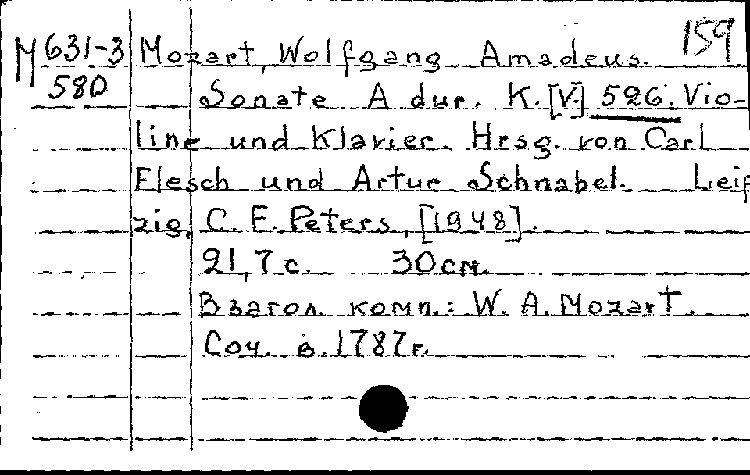 159
М 631-3
580
Mozart, Wolfgang Amadeus.
Sonate A dur. K.[V.] 526. Vio-
line und Klavier. Hrsg. von Carl
Flesch und Artur Schnabel. Leip
zig, C. F. Peters, [1948].
21,7 с. 30см.
В загол. комп.: W. A. Mozart.
Соч. в. 1787г.